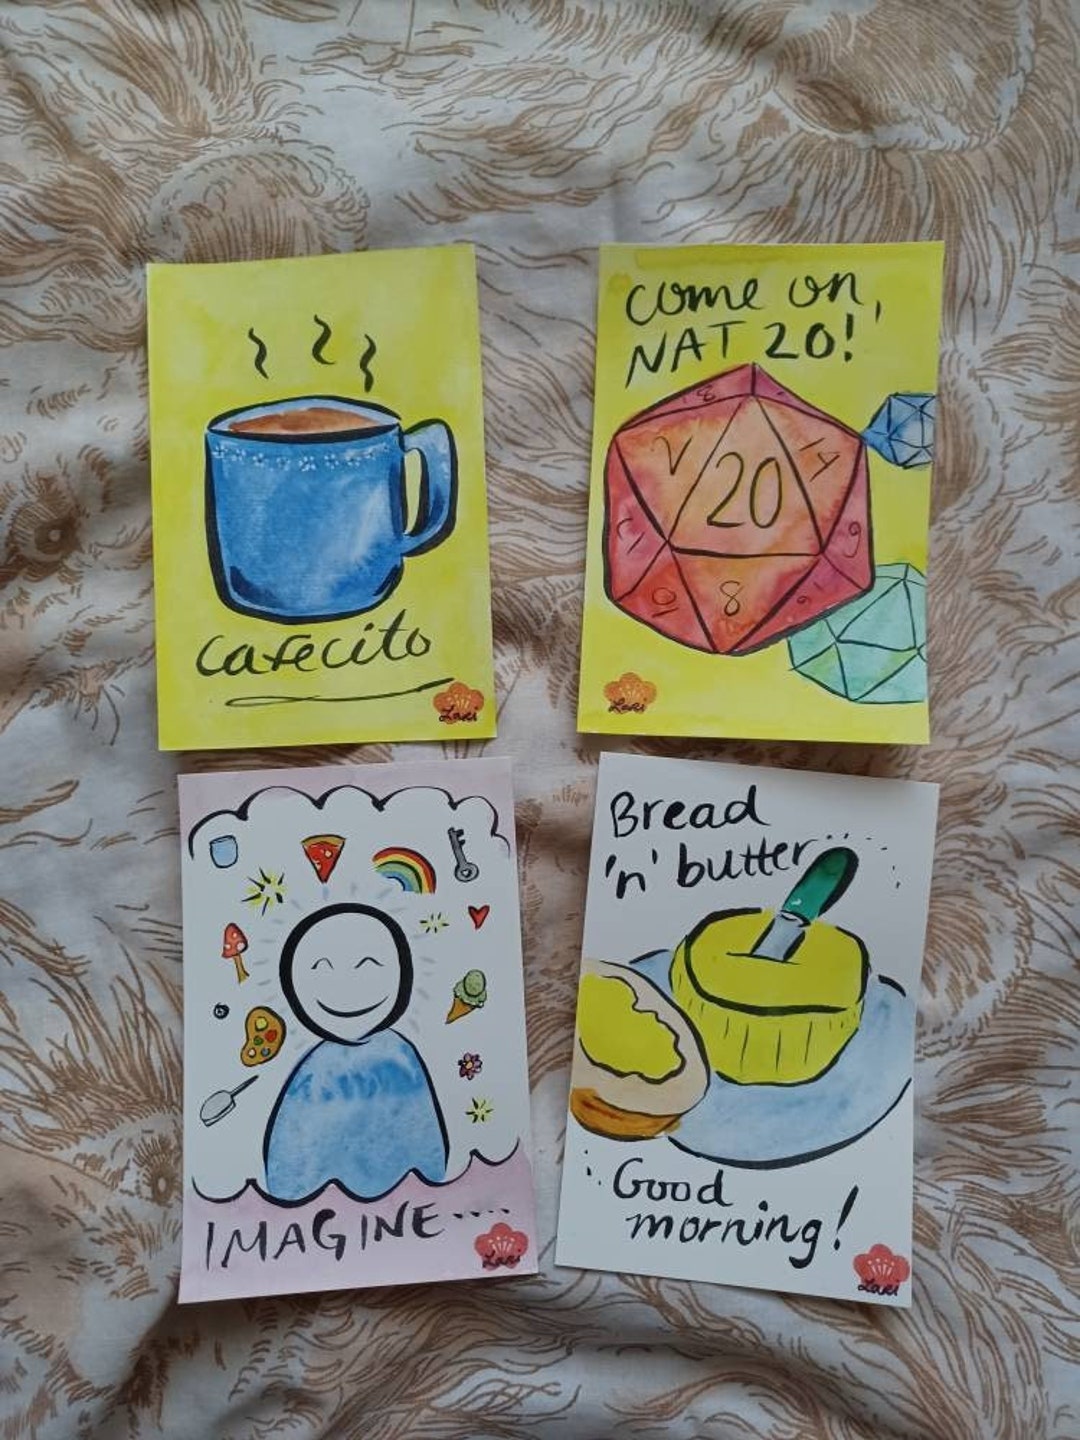 Cafecito
Lari
Come on,
NAT 20!
20
8
Lari
IMAGINE....
Lari
Bread
'n' butter...
Good
morning!
Lari